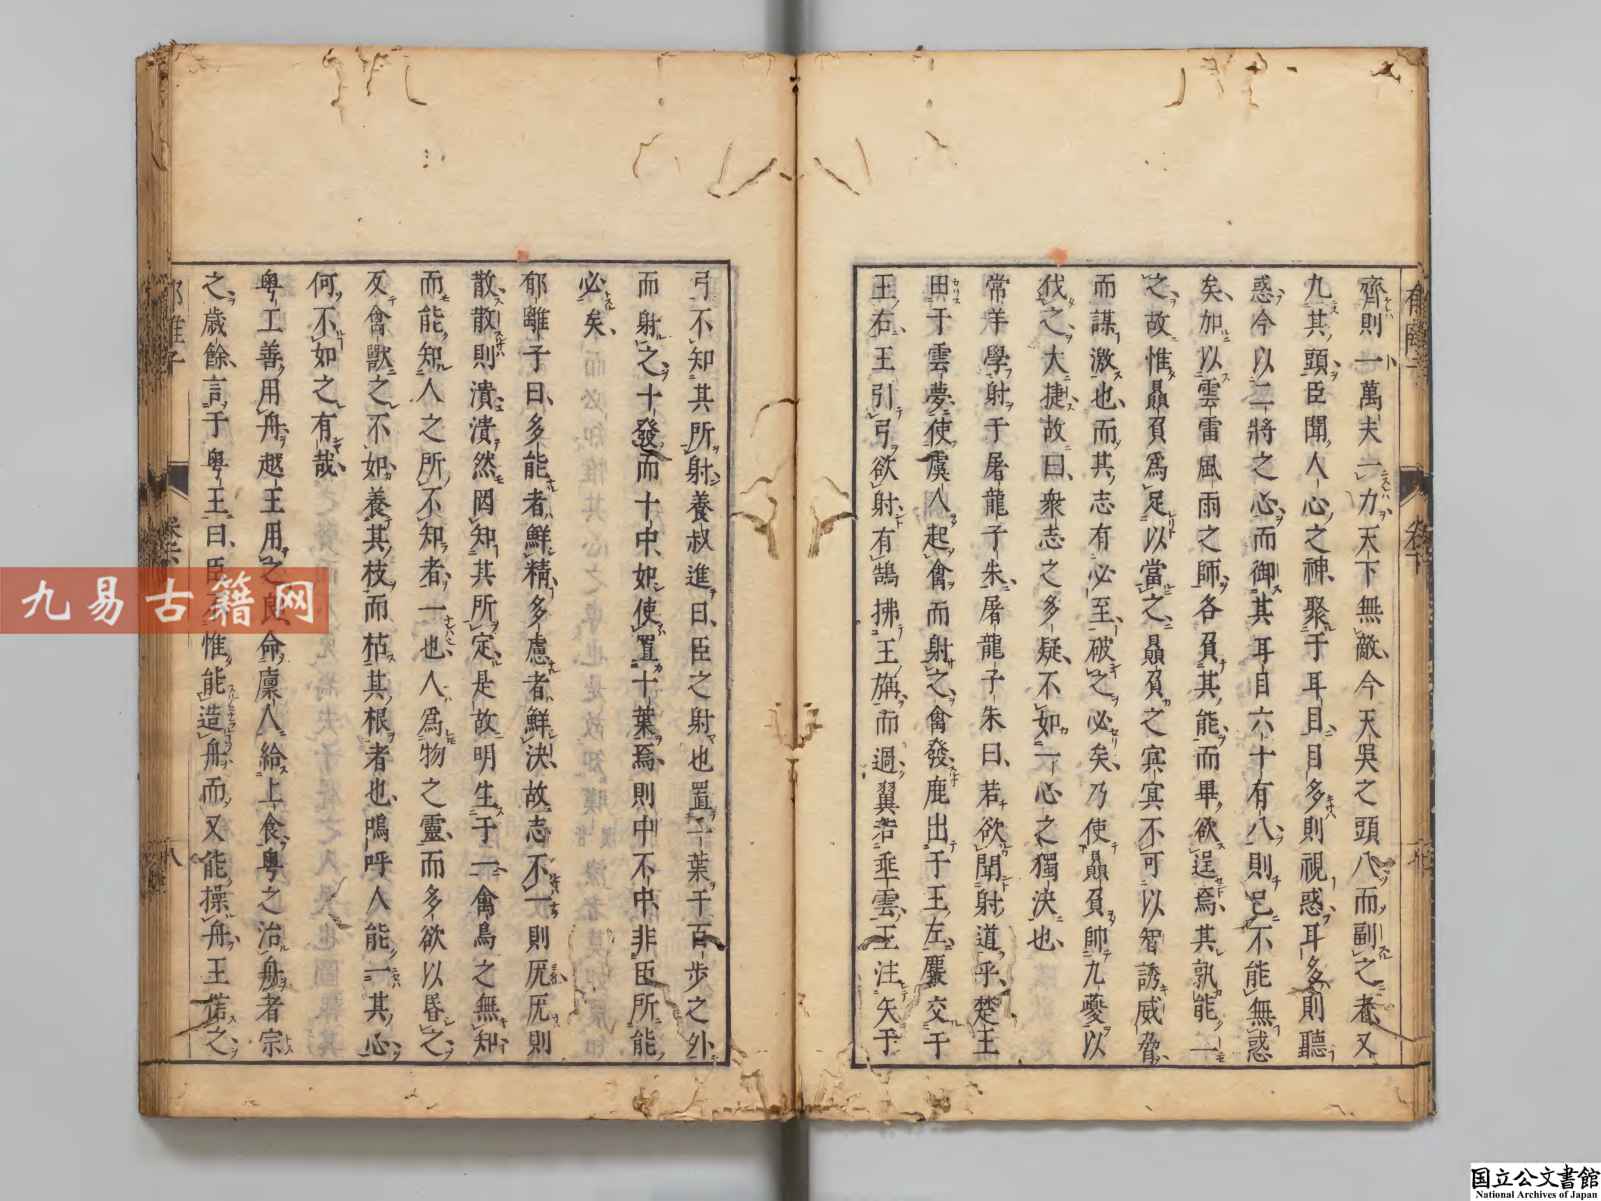 齊則一萬夫一力天下無敵今天吳之頭八而副之者又
九其頭臣聞人心之神聚于耳目目多則視惑耳多則聽
惑今以二將之心而御其耳目六十有八則已不能無惑
矣加以雲雷風雨之師各負其能而畢欲逞焉其孰能一
之故惟贔屭爲足以當之贔屭之冥冥不可以智誘威脅
而謀激也而其志有必至破之必矣乃使贔屭帥九夔以
伐之大捷故曰衆志之多疑不如一心之獨決也
常羊學射于屠龍子朱屠龍子朱曰若欲聞射道乎楚王
田于雲夢使虞人起禽而射之禽發鹿出于王左麋交于
王右王引弓欲射有鵠拂王旃而過翼若垂雲王注矢于
弓不知其所射養叔進曰臣之射也置一葉于百步之外
而射之十發而十中如使置十葉焉則中不中非臣所能
必矣
郁離子曰多能者鮮精多慮者鮮決故志不一則厖厖則
散散則潰潰然罔知其所定是故明生于一禽鳥之無知
而能知人之所不知者一也人爲物之靈而多欲以昏之
反禽獸之不如養其枝而枯其根者也嗚呼人能一其心
何不如之有哉
粵工善用舟越王用之良命廩人給上食粵之治舟者宗
之歲餘言于粵王曰臣惟能造舟而又能操舟王偌之
郁離子
八
九易古籍网
国立公文書館
National Archives of Japan